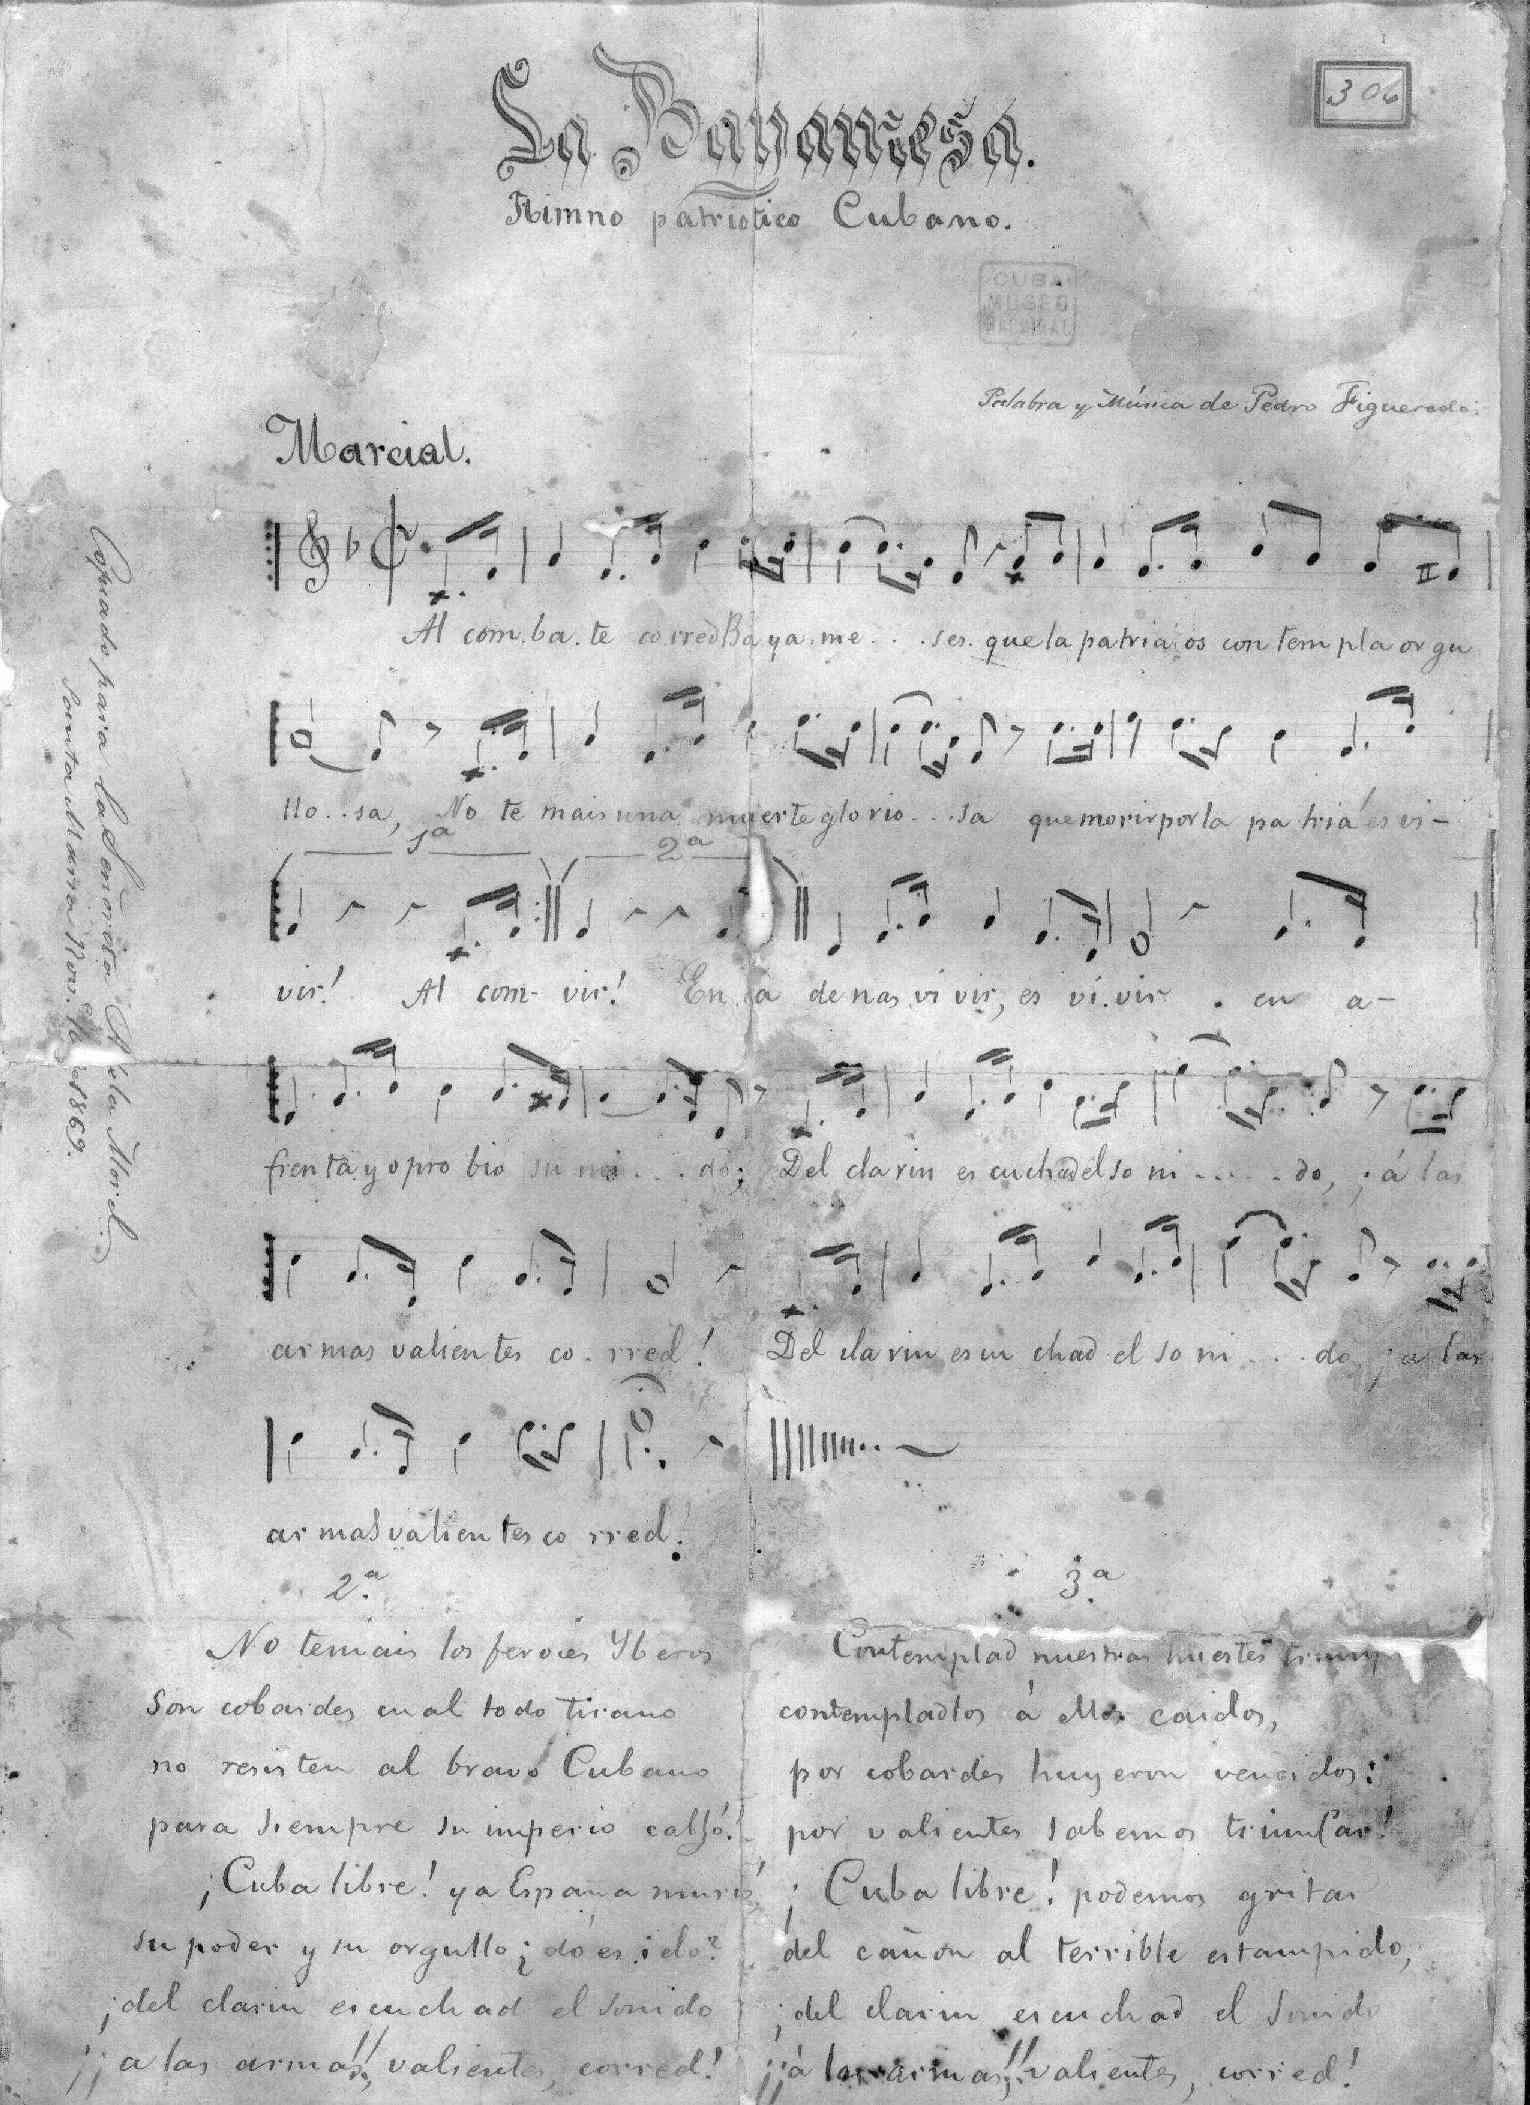 La Bayamesa.
306
Himno patriotico Cubano.
CUBA
MUSEO
NACIONAL
Palabra y Música de Pedro Figueredo.
Marcial.
Al com.ba.te corred Bayame...ses. que la patria os contempla orgu
llo..sa, No temais una muerte glorio...sa que morir por la patria és vi-
1ª 2ª
vir! Al com- vir! En cadenas vivir, es vi.vir . en a-
frenta y oprobio sumi....do; Del clarin escuchad el soni.....do, ¡á las
armas valientes co.rred! Del clarin escuchad el soni....do, ¡a las
armas valientes corred!
Copiado para la Señorita Adela Morel
Santa Maria Nov. 1869.
2.ª
No temais los feroces Yberos
son cobardes cual todo tirano
no resisten al bravo Cubano
para siempre su imperio calló!
¡Cuba libre! ya España murió,
su poder y su orgullo ¿dó es ido?
¡del clarin escuchad el sonido
¡¡a las armas!!, valientes, corred!
3.ª
Contemplad nuestras huestes
contempladlos á ellos caidos,
por cobardes huyeron vencidos:
por valientes sabemos triunfar!
¡Cuba libre! podemos gritar
del cañon al terrible estampido,
¡del clarin escuchad el sonido
¡¡á las armas,!! valientes, corred!